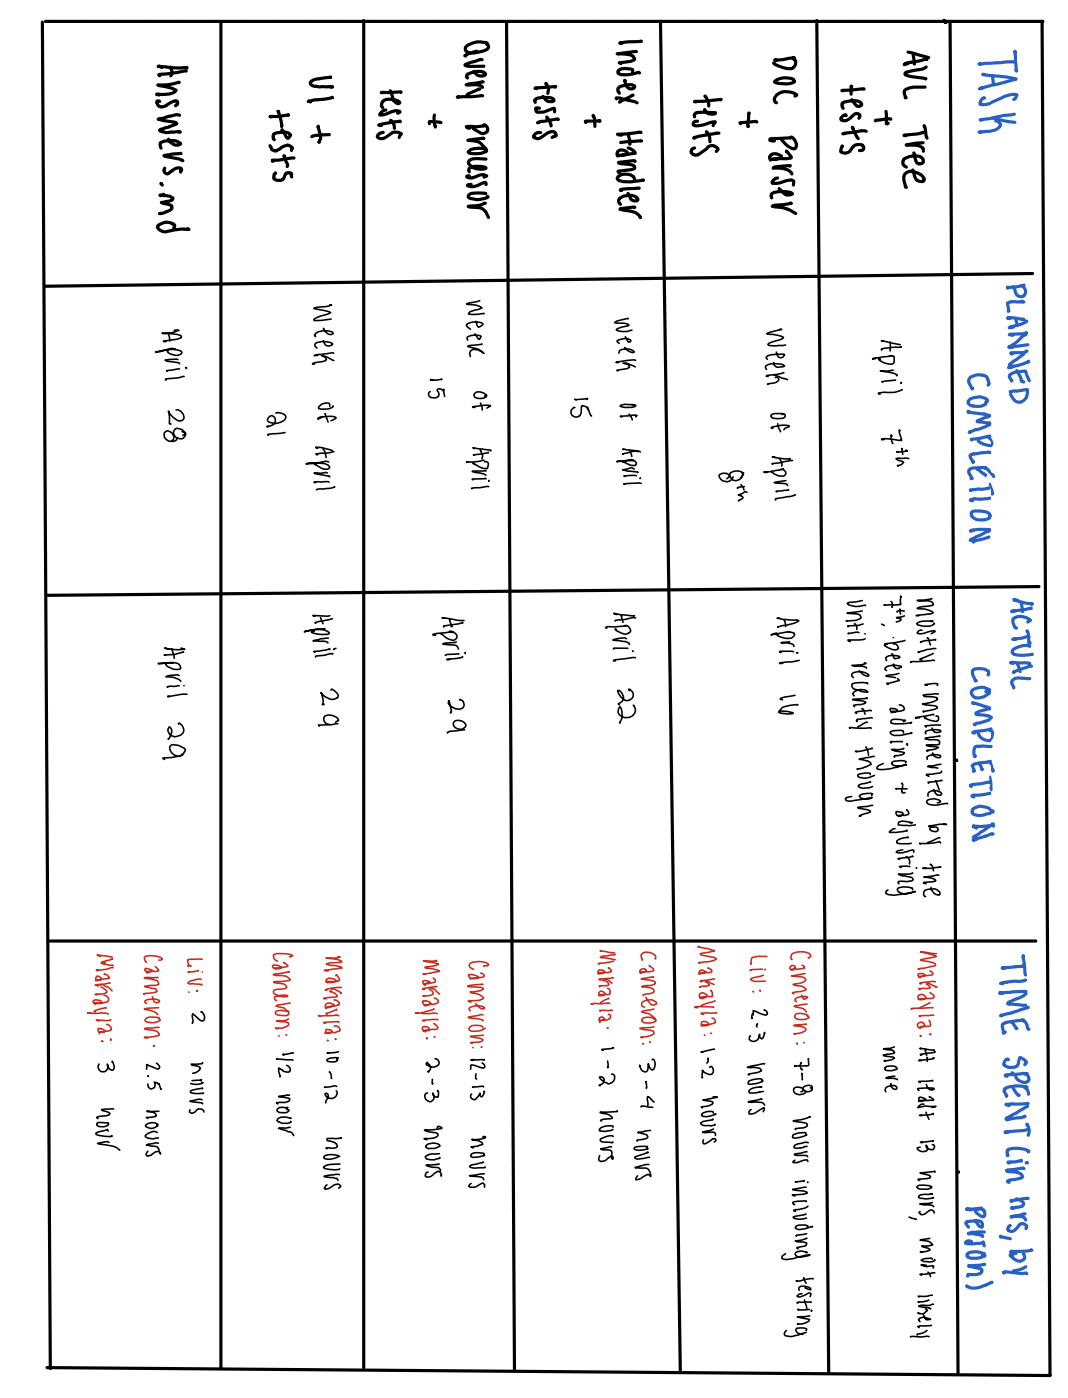 TASK
PLANNED
COMPLETION
ACTUAL
COMPLETION
TIME SPENT (in hrs, by
person)
AVL Tree
+
tests
April 7th
mostly implemented by the
7th, been adding + adjusting
until recently though
Makayla: At least 13 hours, most likely
more
DOC Parser
+
tests
week of April
8th
April 16
Cameron: 7-8 hours including testing
Liv: 2-3 hours
Makayla: 1-2 hours
Index Handler
+
tests
week of April
15
April 22
Cameron: 3-4 hours
Makayla: 1-2 hours
Query Processor
+
tests
week of April
15
April 29
Cameron: 12-13 hours
Makayla: 2-3 hours
UI +
tests
week of April
21
April 29
Makayla: 10-12 hours
Cameron: 1/2 hour
Answers.md
April 28
April 29
Liv: 2 hours
Cameron: 2.5 hours
Makayla: 3 hour